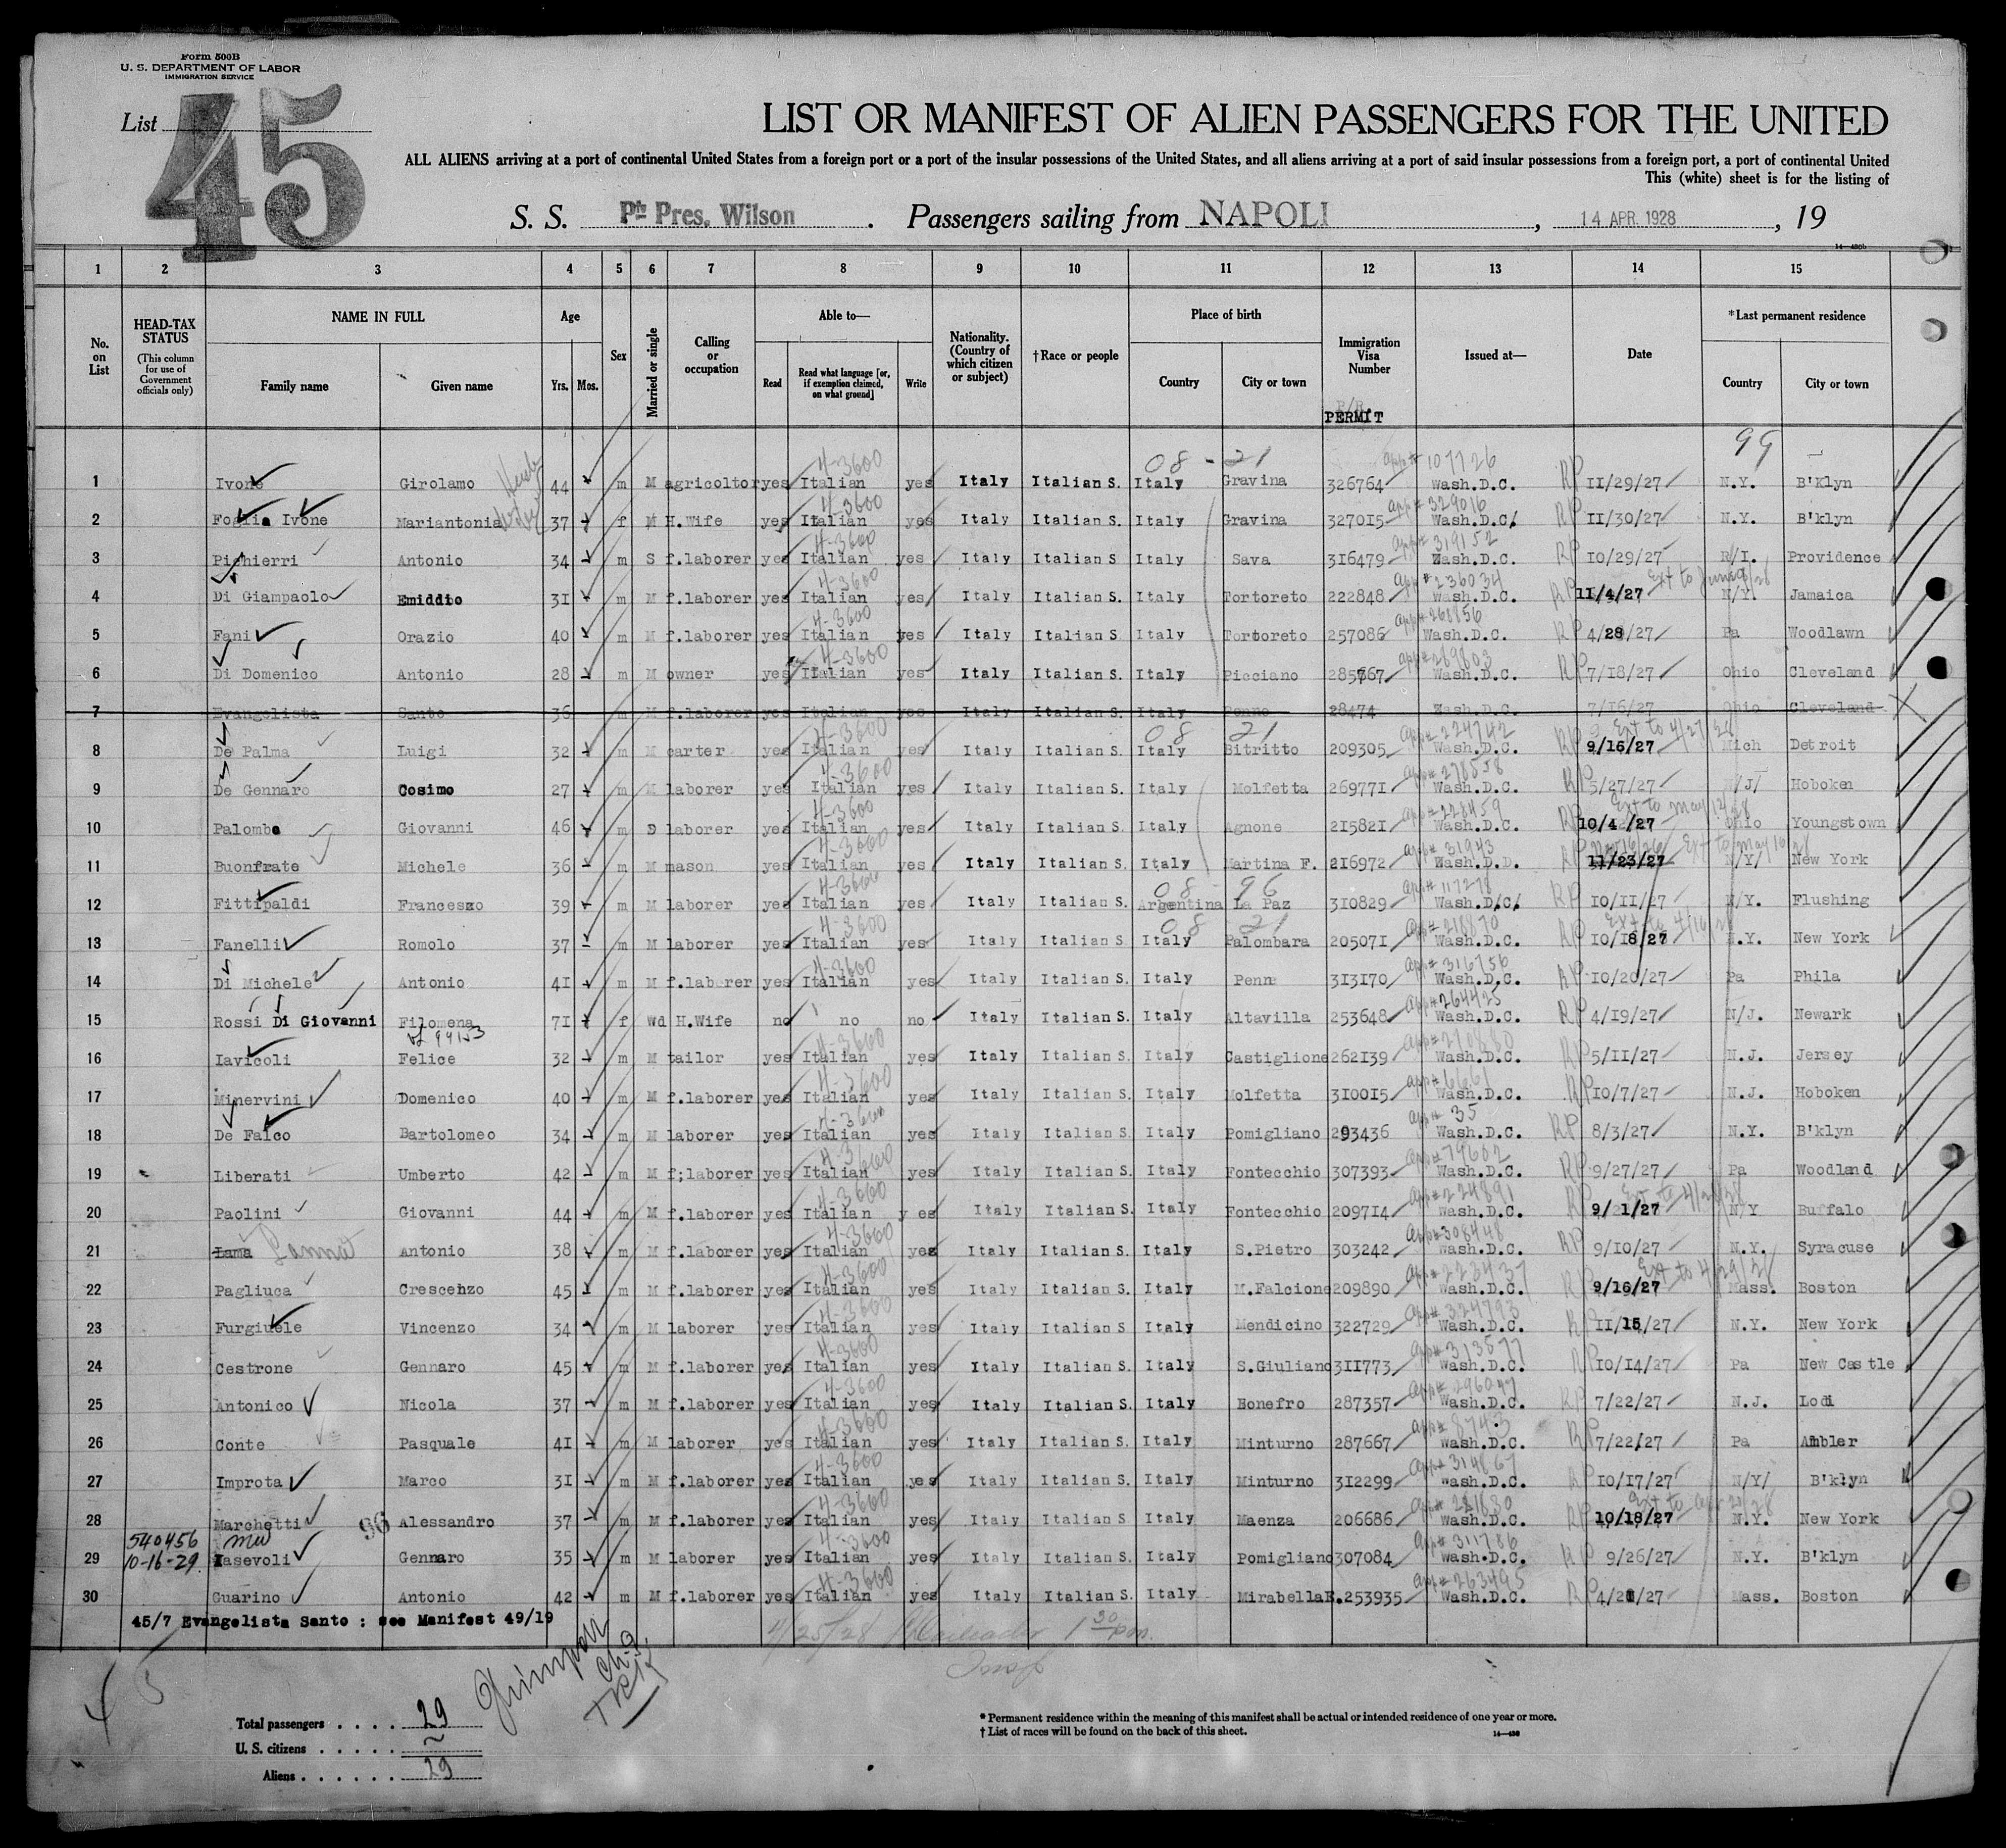 Form 500B
U. S. DEPARTMENT OF LABOR
IMMIGRATION SERVICE
List 45
LIST OR MANIFEST OF ALIEN PASSENGERS FOR THE UNITED
ALL ALIENS arriving at a port of continental United States from a foreign port or a port of the insular possessions of the United States, and all aliens arriving at a port of said insular possessions from a foreign port, a port of continental United
This (white) sheet is for the listing of
S. S. Pfo Pres. Wilson . Passengers sailing from NAPOLI , 14 APR. 1928 , 19
1 2 3 4 5 6 7 8 9 10 11 12 13 14 15
No. on List
HEAD-TAX STATUS (This column for use of Government officials only)
NAME IN FULL Family name Given name
Age Yrs. Mos.
Sex
Married or single
Calling or occupation
Able to— Read Read what language [or, if exemption claimed, on what ground] Write
Nationality. (Country of which citizen or subject)
†Race or people
Place of birth Country City or town
Immigration Visa Number PERMIT
Issued at—
Date
*Last permanent residence Country City or town
99
08 - 21
1 Ivone Girolamo 44 m M agricoltor yes Italian 4-3600 yes Italy Italian S. Italy Gravina 326764 app# 107726 Wash.D.C. RP 11/29/27 N.Y. B'Klyn
2 Foglia Ivone Mariantonia 37 f M H.Wife yes Italian 4-3600 yes Italy Italian S. Italy Gravina 327015 app# 329016 Wash.D.C/ RP 11/30/27 N.Y. B'klyn
3 Pichierri Antonio 34 m S f.laborer yes Italian 4-3600 yes Italy Italian S. Italy Sava 316479 app# 319152 Wash.D.C. RP 10/29/27 R/I. Providence
4 Di Giampaolo Emiddio 31 m M f.laborer yes Italian 4-3600 yes Italy Italian S. Italy Tortoreto 222848 app# 236034 Wash.D.C. RP 11/4/27 Ext to N/Y. Jamaica
5 Fani Orazio 40 m M f.laborer yes Italian 4-3600 yes Italy Italian S. Italy Tortoreto 257086 app# 268856 Wash.D.C. RP 4/28/27 Pa Woodlawn
6 Di Domenico Antonio 28 m M owner yes Italian 4-3600 yes Italy Italian S. Italy Picciano 285767 app# 289803 Wash.D.C. RP 7/18/27 Ohio Cleveland
7 Evangelista Santo 36 m M f.laborer yes Italian yes Italy Italian S. Italy Penne 28474 Wash.D.C. 7/16/27 Ohio Cleveland
08 21
8 De Palma Luigi 32 m M carter yes Italian 4-3600 yes Italy Italian S. Italy Bitritto 209305 app# 224742 Wash.D.C. RP 9/16/27 Ext to 4/27/28 Mich Detroit
9 De Gennaro Cosimo 27 m M laborer yes Italian 4-3600 yes Italy Italian S. Italy Molfetta 269771 app# 278558 Wash.D.C. RP 5/27/27 N/J/ Hoboken
10 Palombo Giovanni 46 m laborer yes Italian 4-3600 yes Italy Italian S. Italy Agnone 215821 app# 228459 Wash.D.C. RP 10/4 /27 Ext to May 12/28 Ohio Youngstown
11 Buonfrate Michele 36 m M mason yes Italian 4-3600 yes Italy Italian S. Italy Martina F. 216972 app# 31943 Wash.D.D. RP 11/23/27 Ext to May 16/28 N/Y/ New York
08 - 96
12 Fittipaldi Francesco 39 m M laborer yes Italian 4-3600 yes Italy Italian S. Argentina La Paz 310829 app# 117278 Wash.D/C/ RP 10/11/27 N/Y. Flushing
08 21
13 Fanelli Romolo 37 m M laborer yes Italian 4-3600 yes Italy Italian S Italy Palombara 205071 app# 218870 Wash.D.C. RP 10/18/27 Ext to 4/16/28 N.Y. New York
14 Di Michele Antonio 41 m M f.laborer yes Italian 4-3600 yes Italy Italian S. Italy Penne 313170 app# 316756 Wash.D.C. RP 10/20/27 Pa Phila
15 Rossi Di Giovanni Filomena 71 f Wd H.Wife no no no Italy Italian S. Italy Altavilla 253648 app# 264425 Wash.D.C. RP 4/19/27 N/J. Newark
16 Iavicoli Felice 32 m M tailor yes Italian 4-3600 yes Italy Italian S. Italy Castiglione 262139 Wash.D.C. RP 5/11/27 N.J. Jersey
17 Minervini Domenico 40 m M f.laborer yes Italian 4-3600 yes Italy Italian S. Italy Molfetta 310015 app# 6661 Wash.D.C. RP 10/7/27 N.J. Hoboken
18 De Falco Bartolomeo 34 m M laborer yes Italian 4-3600 yes Italy Italian S. Italy Pomigliano 293436 app# 35 Wash.D.C. RP 8/3/27 N.Y. B'klyn
19 Liberati Umberto 42 m M f;laborer yes Italian 4-3600 yes Italy Italian S. Italy Fontecchio 307393 app# 79602 Wash.D.C. RP 9/27/27 Pa Woodland
20 Paolini Giovanni 44 m M f.laborer yes Italian 4-3600 y es Italy Italian S. Italy Fontecchio 209714 app# 224891 Wash.D.C. RP 9/21/27 Ext to N/Y Buffalo
21 Lama Antonio 38 m M f.laborer yes Italian 4-3600 yes Italy Italian S. Italy S.Pietro 303242 app# 308448 Wash.D.C. RP 9/10/27 N.Y. Syracuse
22 Pagliuca Crescenzo 45 m M f.laborer yes Italian 4-3600 yes Italy Italian S. Italy M.Falcione 209890 app# 223437 Wash.D.C. RP 9/16/27 Ext to 4/29/28 Mass. Boston
23 Furgiuele Vincenzo 34 m M laborer yes Italian 4-3600 yes Italy Italian S Italy Mendicino 322729 app# 324793 Wash.D.C. RP 11/15/27 N.Y. New York
24 Cestrone Gennaro 45 m M f.laborer yes Italian 4-3600 yes Italy Italian S. Italy S.Giuliano 311773 app# 313577 Wash.D.C. RP 10/14/27 Pa New Castle
25 Antonico Nicola 37 m M f.laborer yes Italian 4-3600 yes Italy Italian S. Italy Bonefro 287357 app# Wash.D.C. RP 7/22/27 N.J. Lodi
26 Conte Pasquale 41 m M laborer yes Italian 4-3600 yes Italy Italian S. Italy Minturno 287667 app# 8743 Wash.D.C. RP 7/22/27 Pa Ambler
27 Improta Marco 31 m M f.laborer yes Italian 4-3600 yes Italy Italian S. Italy Minturno 312299 app# 314867 Wash.D.C. RP 10/17/27 N/Y/ B'klyn
28 Marchetti 96 Alessandro 37 m M f.laborer yes Italian 4-3600 yes Italy Italian S. Italy Maenza 206686 app# Wash.D.C. RP 10/18/27 Ext to N.Y. New York
540456
29 10-16-29. Iasevoli Gennaro 35 m M laborer yes Italian 4-3600 yes Italy Italian S. Italy Pomigliano 307084 app# 311786 Wash.D.C. RP 9/26/27 N.Y. B'klyn
30 Guarino Antonio 42 m M f.laborer yes Italian 4-3600 yes Italy Italian S. Italy MirabellaE. 253935 app# 263495 Wash.D.C. RP 4/21/27 Mass. Boston
45/7 Evangelista Santo : see Manifest 49/19
4/25/28 1 30 pm.
Insp
Total passengers . . . . 29
U. S. citizens . . . . . ~
Aliens . . . . . . 29
* Permanent residence within the meaning of this manifest shall be actual or intended residence of one year or more.
† List of races will be found on the back of this sheet.